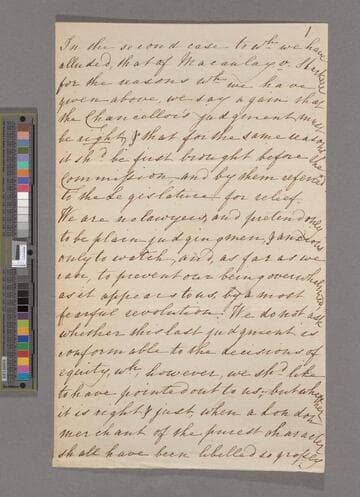 1
In the second case to wh. we have
alluded, that of Macaulay v.
for the reasons wh. we have
given above, we say again that
the Chancellor's judgment must
be right, & that for the same reason
it shd. be first brought before the
Commission and by them referred
to the Legislature for relief.
We are no lawyers, and pretend only
to be plain judging men, & anxious
only to watch, and, as far as we
can, to prevent our being overwhelmed
as it appears to us, by a most
fearful revolution. We do not ask
whether this last judgment is
conformable to the decisions of
equity, wh. however, we shd. like
to have pointed out to us; but whether
it is right & just, when a London
merchant of the purest character
shall have been libelled so grossly